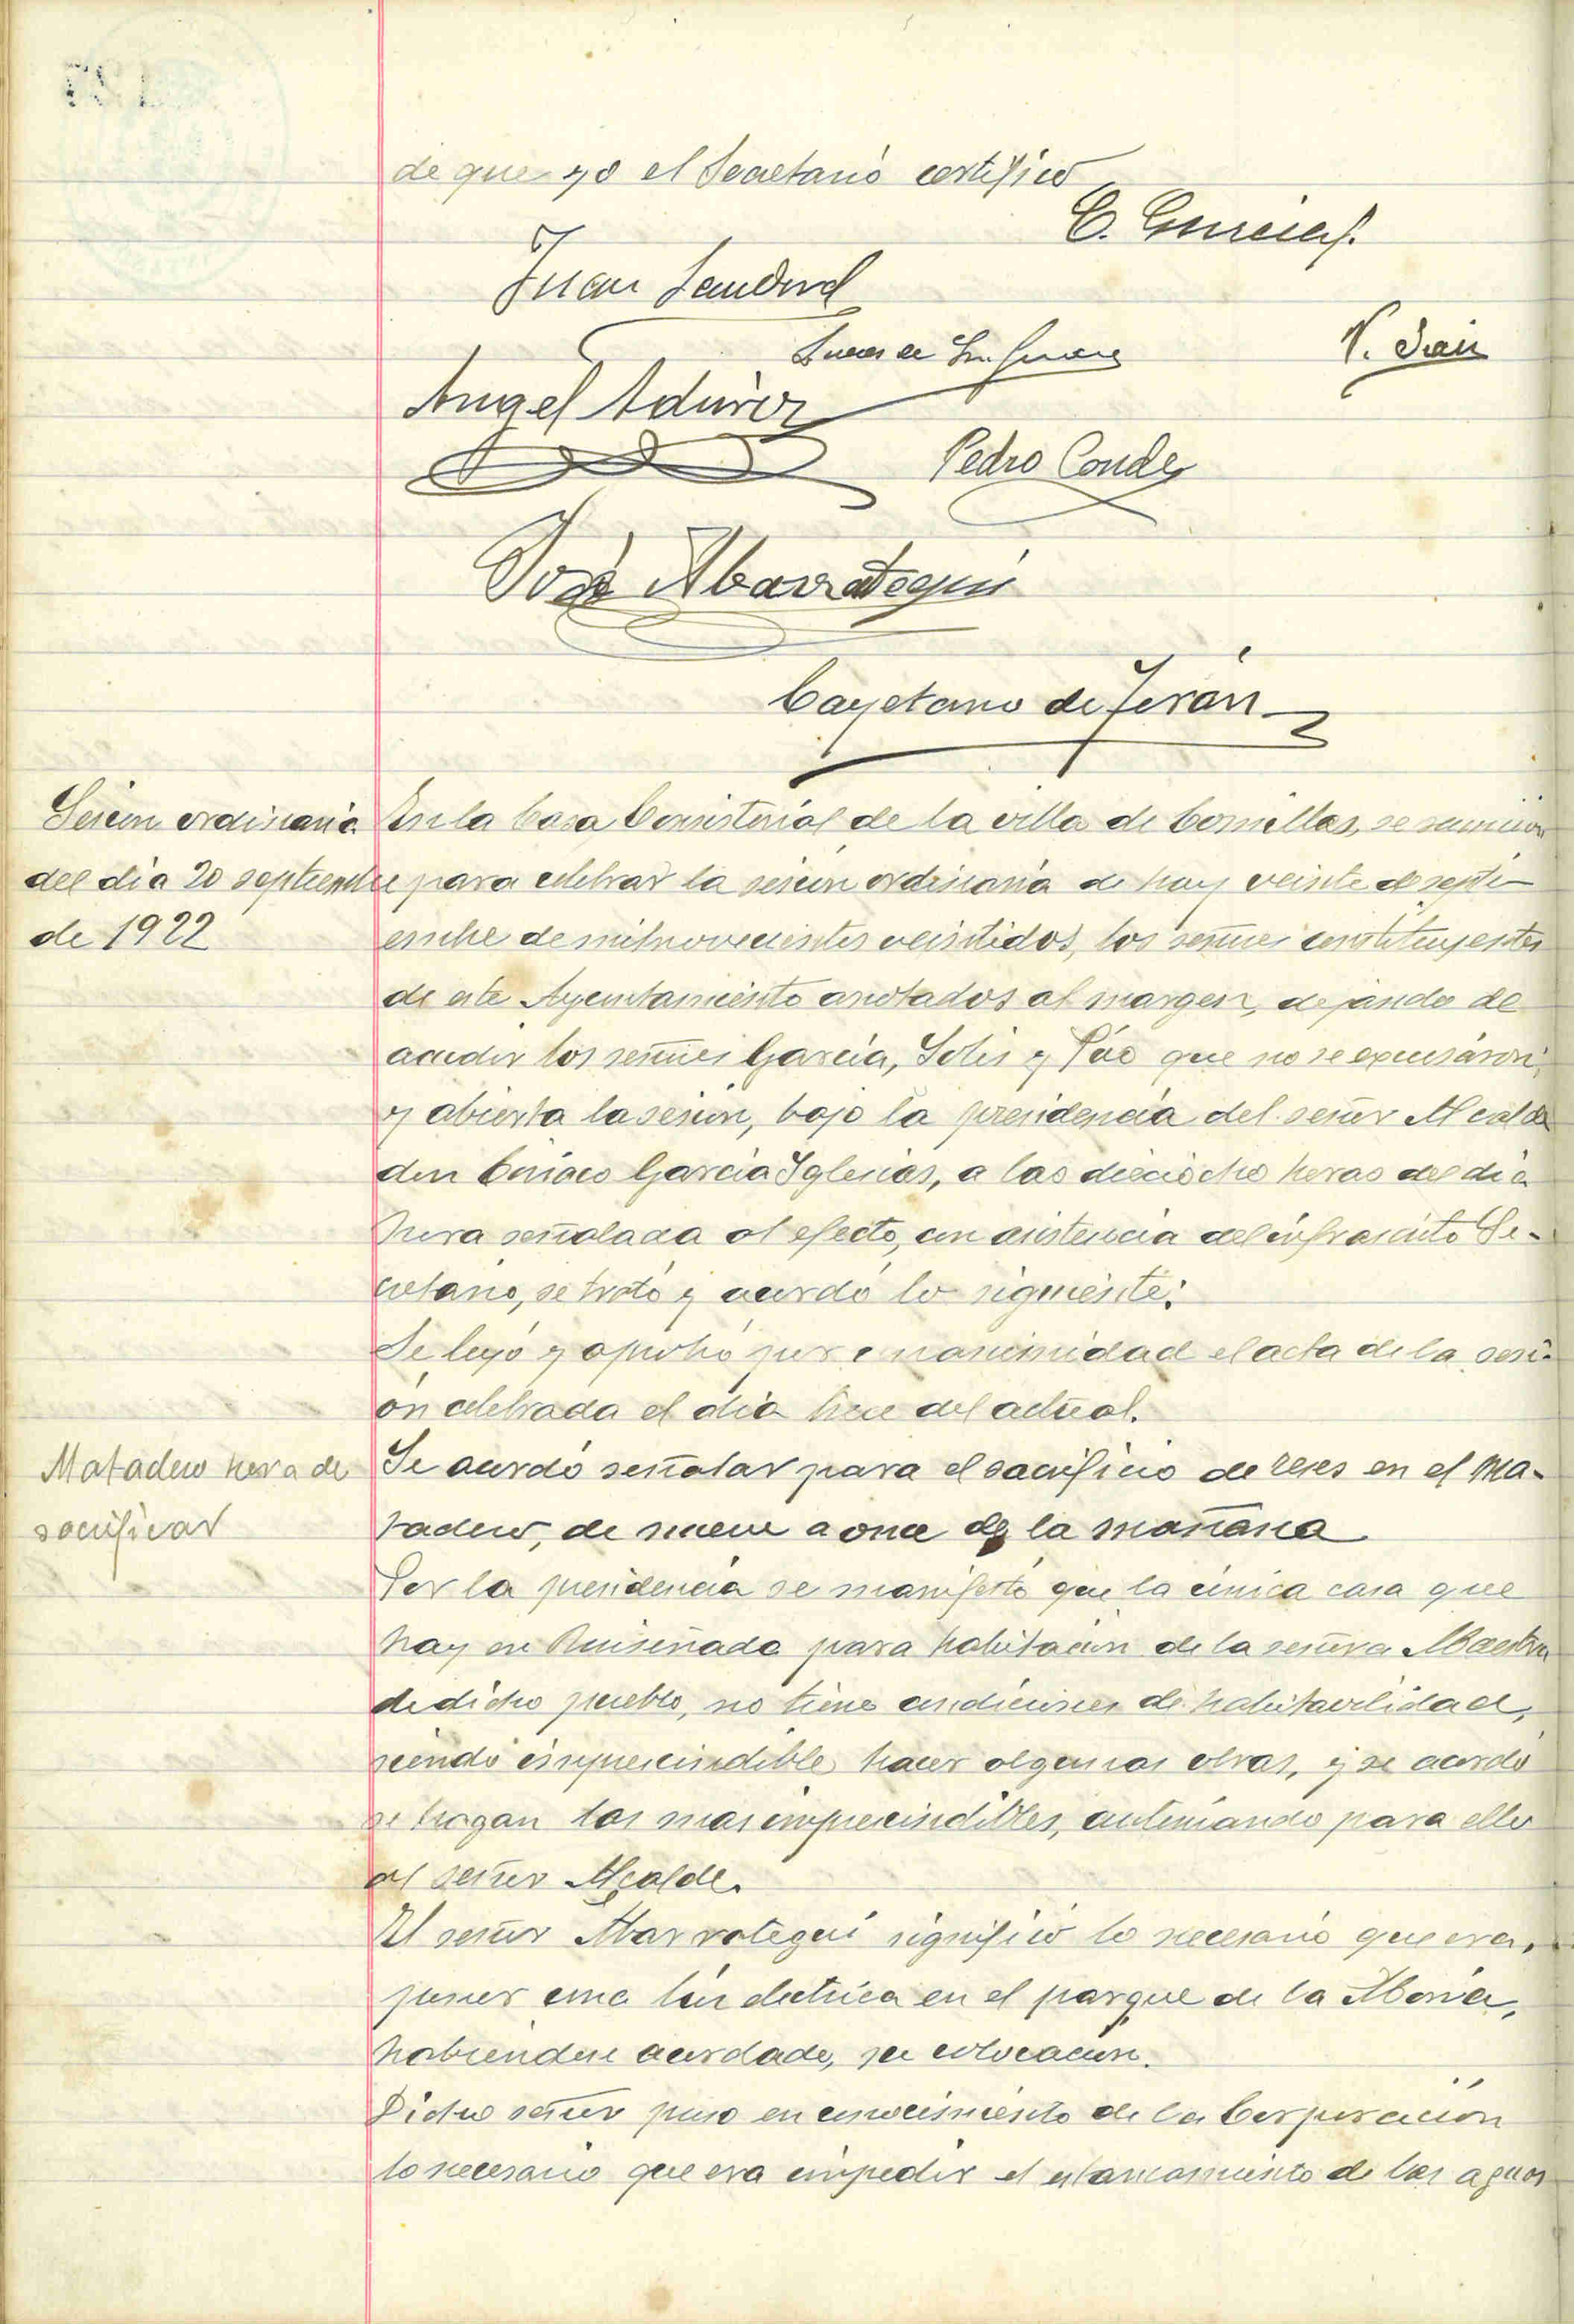 de que yo el Secretario certifico
C. García
Juan Sandoval
V. Díaz
Angel Adúriz
Pedro Conde
José Abarrategui
Cayetano de Terán
Sesión ordinaria
del dia 20 septiembre
de 1922
En la Casa Consistorial de la villa de Comillas, se reunieron
para celebrar la sesión ordinaria de hoy veinte de septi-
embre de mil novecientos veintidos, los señores constituyentes
de este Ayuntamiento anotados al margen, dejando de
acudir los señores García, Solís y que no se excusaron;
y abierta la sesión, bajo la presidencia del señor Alcalde
don Ciriaco García Iglesias, a las dieciocho horas del dia
hora señalada al efecto, con asistencia del infrascrito Se-
cretario, se trató y acordó lo siguiente:
Se leyó y aprobó por unanimidad el acta de la sesi-
ón celebrada el dia trece del actual.
Matadero hora de
sacrificar
Se acordó señalar para el sacrificio de reses en el Ma-
tadero, de nueve a once de la mañana
Por la presidencia se manifestó que la única casa que
hay en Ruiseñada para habitación de la señora Maestra
de dicho pueblo, no tiene condiciones de habitavilidad,
siendo imprescindible hacer algunas obras, y se acordó
se hagan las mas imprescindibles, autorizando para ello
al señor Alcalde.
El señor Abarrategui significó lo necesario que era,
poner una luz eléctrica en el parque de la
habiendose acordado, su colocación.
Dicho señor puso en conocimiento de la Corporación
lo necesario que era impedir el estancamiento de las aguas